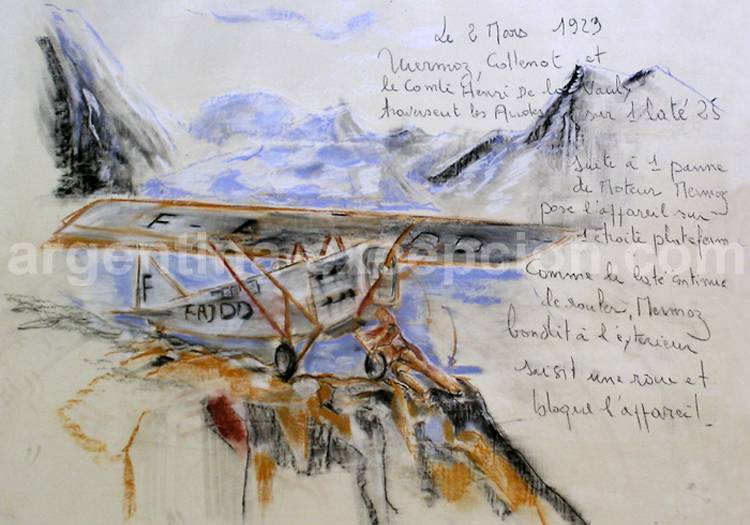 Le 2 Mars 1929
Mermoz, Collenot et
le Comte Henri De la Vaulx
traversent les Andes sur 1 laté 25
suite à 1 panne
de Moteur Mermoz
pose l'appareil sur
1 étroite plateform
Comme le laté continue
de rouler, Mermoz
bondit à l'exterieur
saisit une roue et
bloque l'appareil.
F-A
F
F-AJDD
argentina-excepcion.com